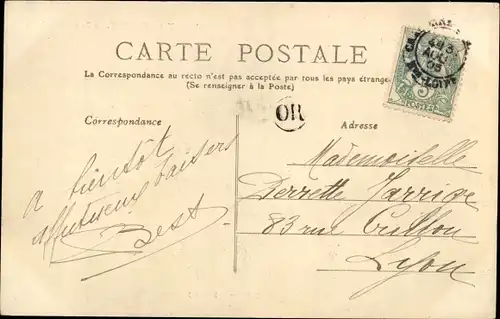 CARTE POSTALE
La Correspondance au recto n'est pas acceptée par tous les pays étrange
(Se renseigner à la Poste)
OR
5
POSTES
Correspondance
Adresse
a bientôt
affectueux baisers
Best
Mademoiselle
Perrette Jarrige
83 rue Crillon
Lyon